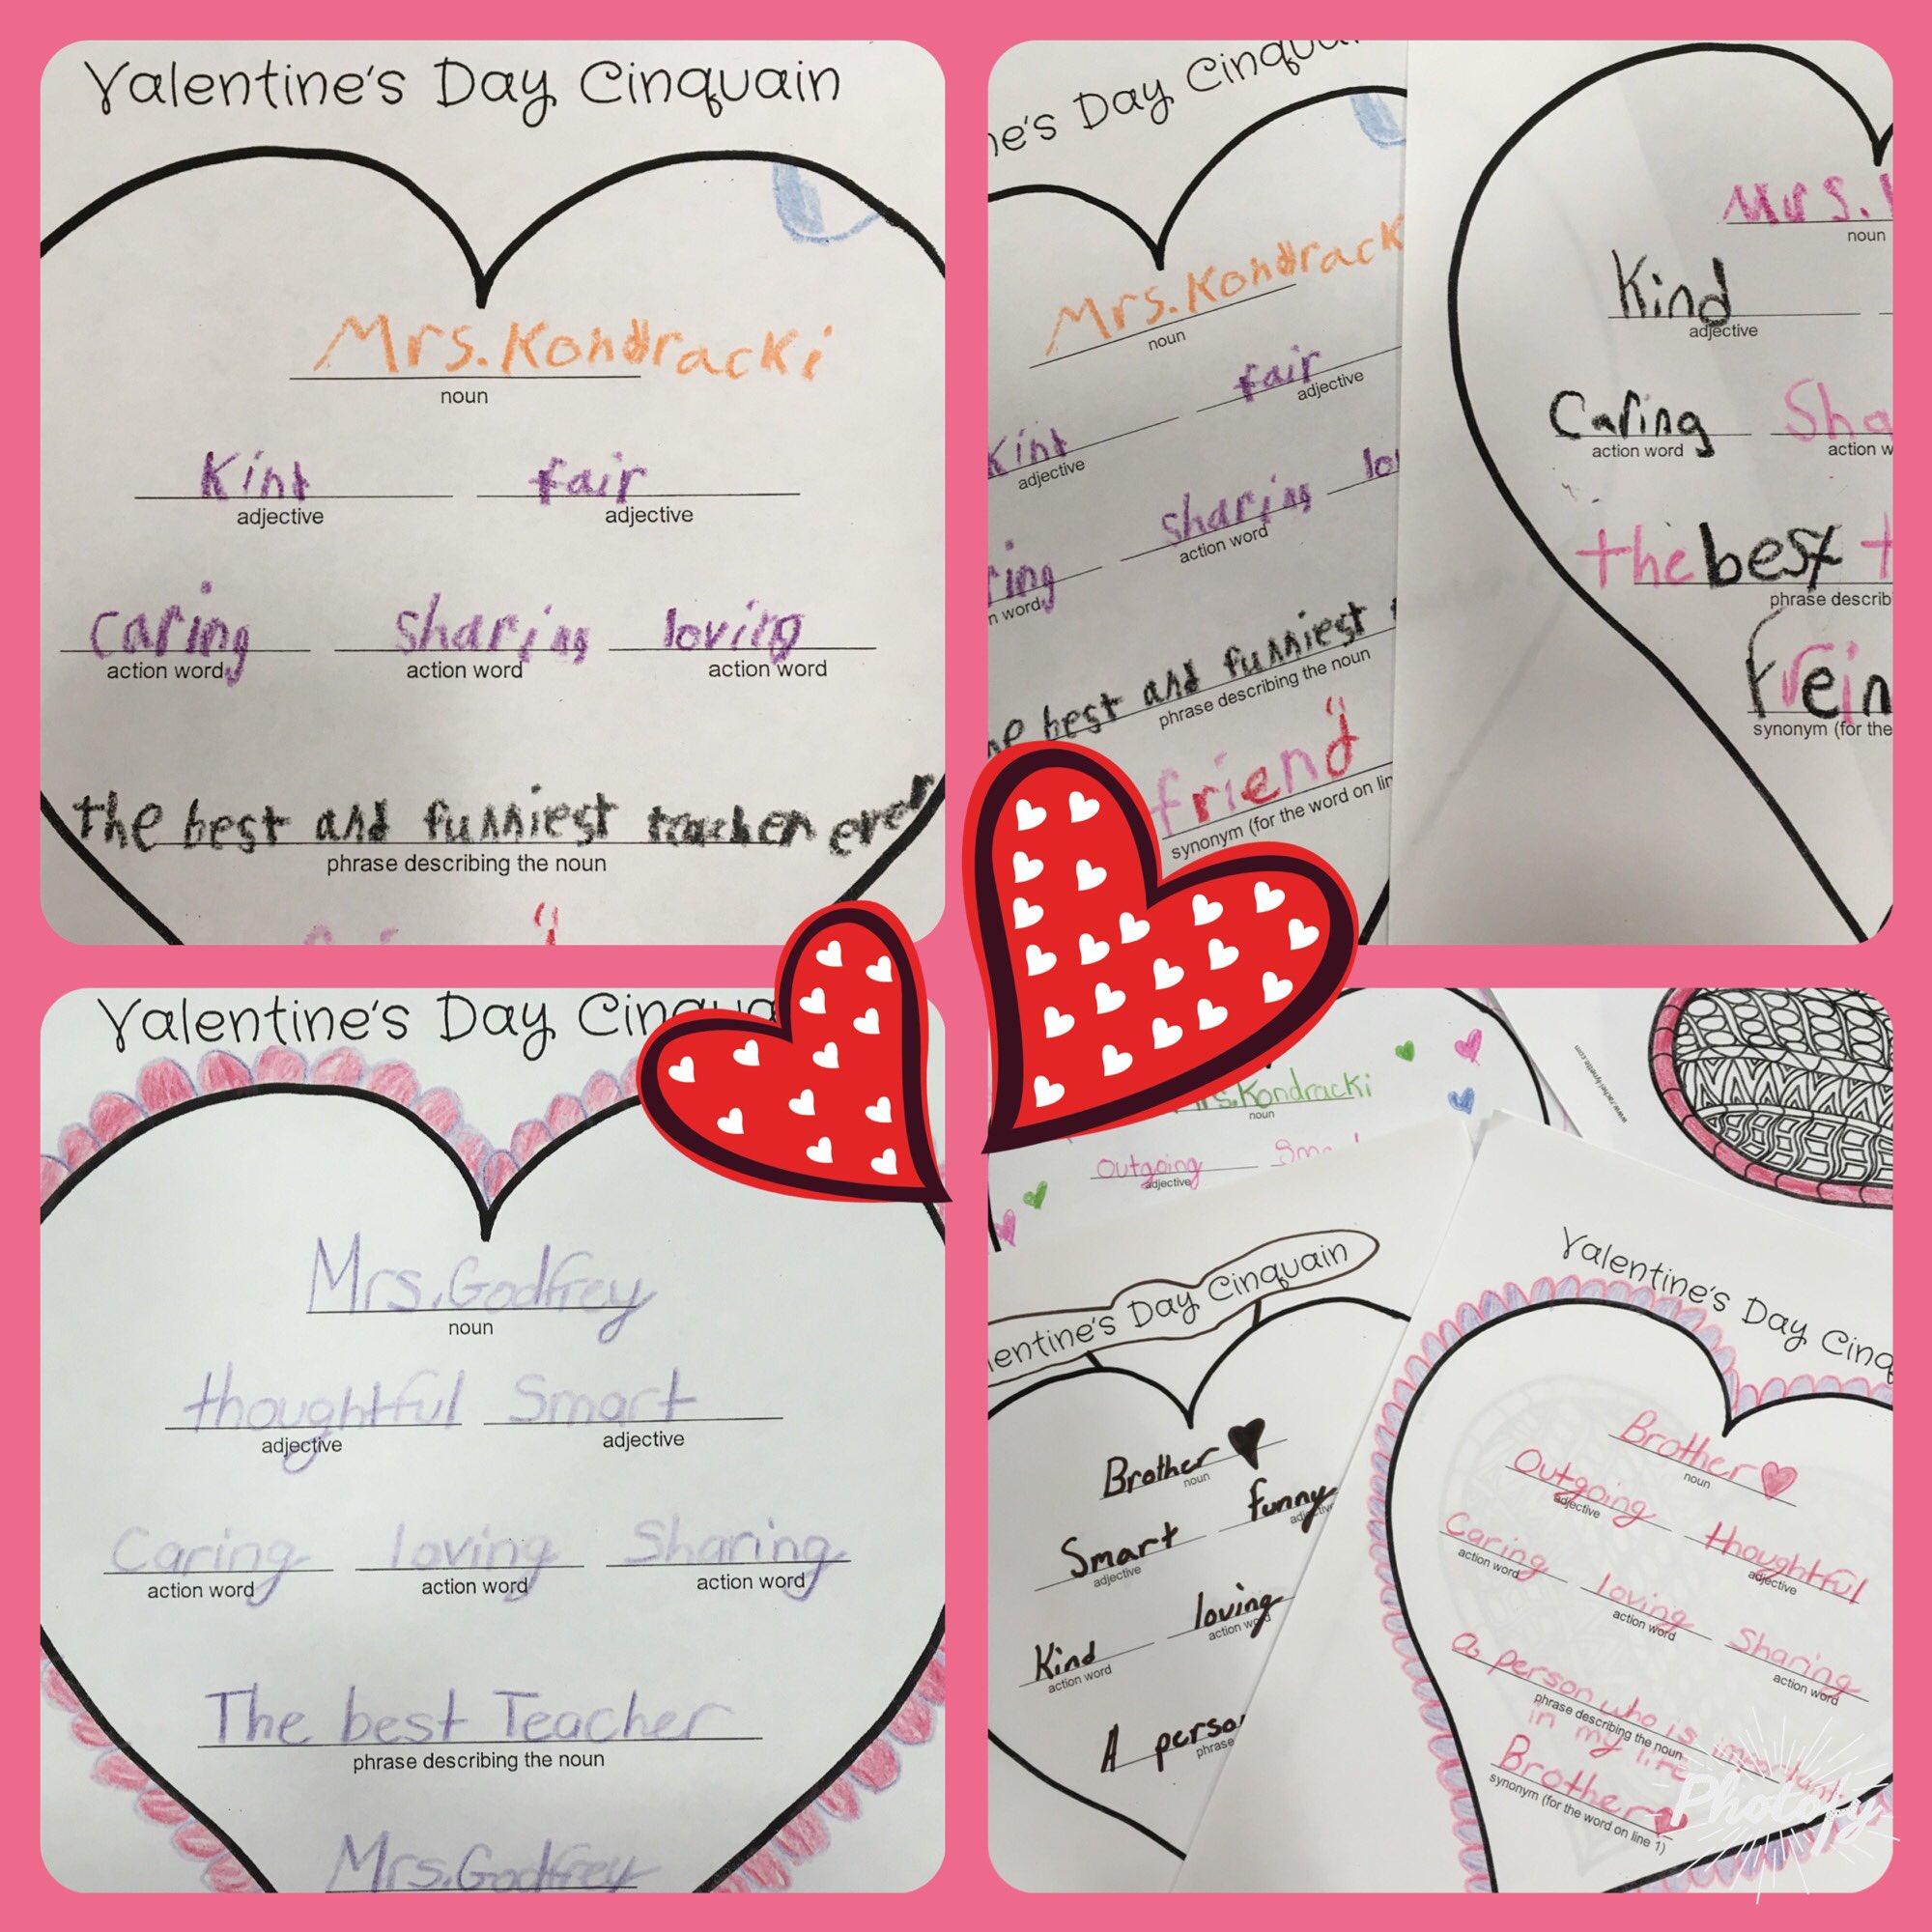 Valentine's Day Cinquain
Mrs. Kondracki
noun
Kind fair
adjective adjective
caring sharing loving
action word action word action word
the best and funniest teacher ever
phrase describing the noun
ne's Day Cinqu
Mrs. Kondrack
noun
Kind fair
adjective adjective
ring sharing lo
n word action word
he best and funniest
phrase describing the noun
friend
synonym (for the word on lin
Mrs.
noun
Kind
adjective
Caring Sha
action word action w
the best t
phrase describ
frein
synonym (for the
Valentine's Day Cinqua
Mrs. Godfrey
noun
thoughtful Smart
adjective adjective
Caring loving Sharing
action word action word action word
The best Teacher
phrase describing the noun
Mrs. Godfrey
Mrs. Kondracki
noun
Outgoing Sma
adjective
www.rachel-lynette.com
lentine's Day Cinquain
Brother
noun
Smart funny
adjective adjective
Kind loving
action word action word
A person
phrase
Valentine's Day Cinq
Brother
noun
Outgoing thoughtful
adjective adjective
Caring loving Sharing
action word action word action word
a person who is important
in my life
phrase describing the noun
Brother
synonym (for the word on line 1)
Photofy